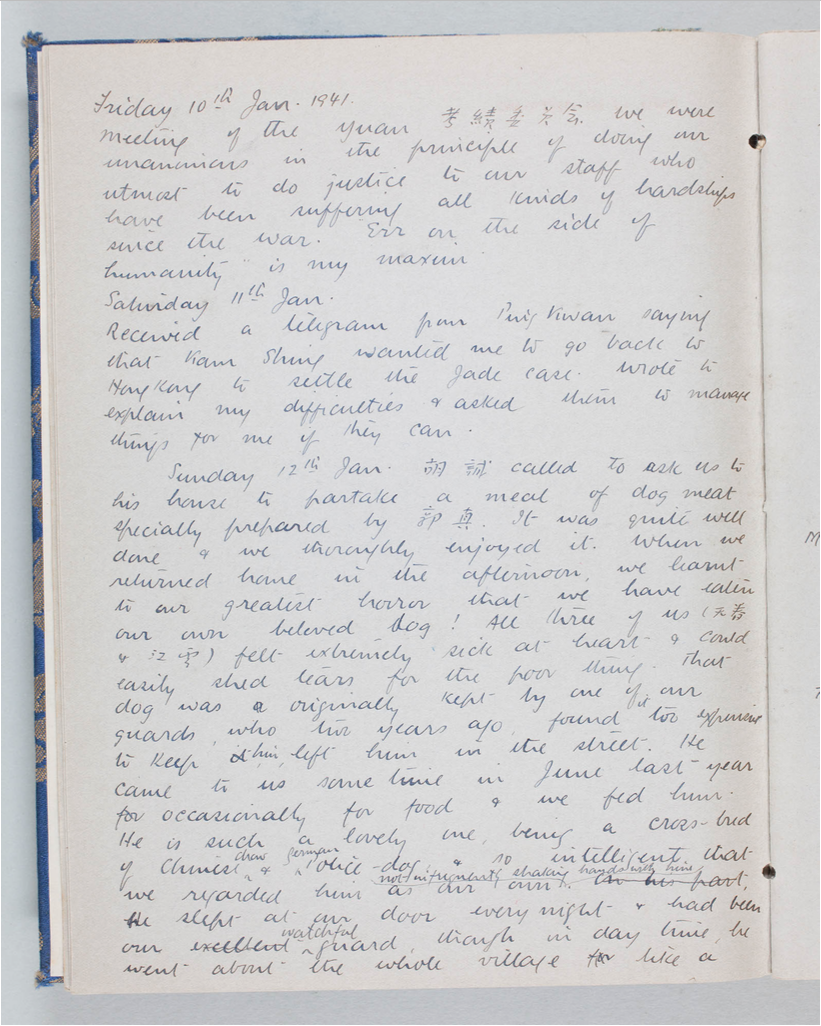 Friday 10th Jan. 1941.
meeting of the Yuan 考績委员会. We were
unanimous in the principle of doing our
utmost to do justice to our staff who
have been suffering all kinds of hardships
since the war. Err on the side of
humanity" is my maxim.
Saturday 11th Jan.
Received a telegram from Ping Kwan saying
that Kam Shing wanted me to go back to
Hong Kong to settle the Jade case. Wrote to
explain my difficulties & asked them to manage
things for me if they can.
Sunday 12th Jan. 胡誠 called to ask us to
his house to partake a meal of dog meat
specially prepared by 真. It was quite well
done & we thoroughly enjoyed it. When we
returned home in the afternoon, we learnt
to our greatest horror that we have eaten
our own beloved dog! All three of us (天春
& 江雲) felt extremely sick at heart & could
easily shed tears for the poor thing. That
dog was a originally kept by one of our
guards, who two years ago, found it too expensive
to keep him, left him in the street. He
came to us some time in June last year
for occasionally for food & we fed him.
He is such a lovely one, being a cross-bred
of Chinese chow & german Police dog, & so intelligent that
we regarded him as our own. not infrequently shaking hands with him on his part,
He slept at our door every night & had been
our excellent watchful guard, though in day time, he
went about the whole village like a